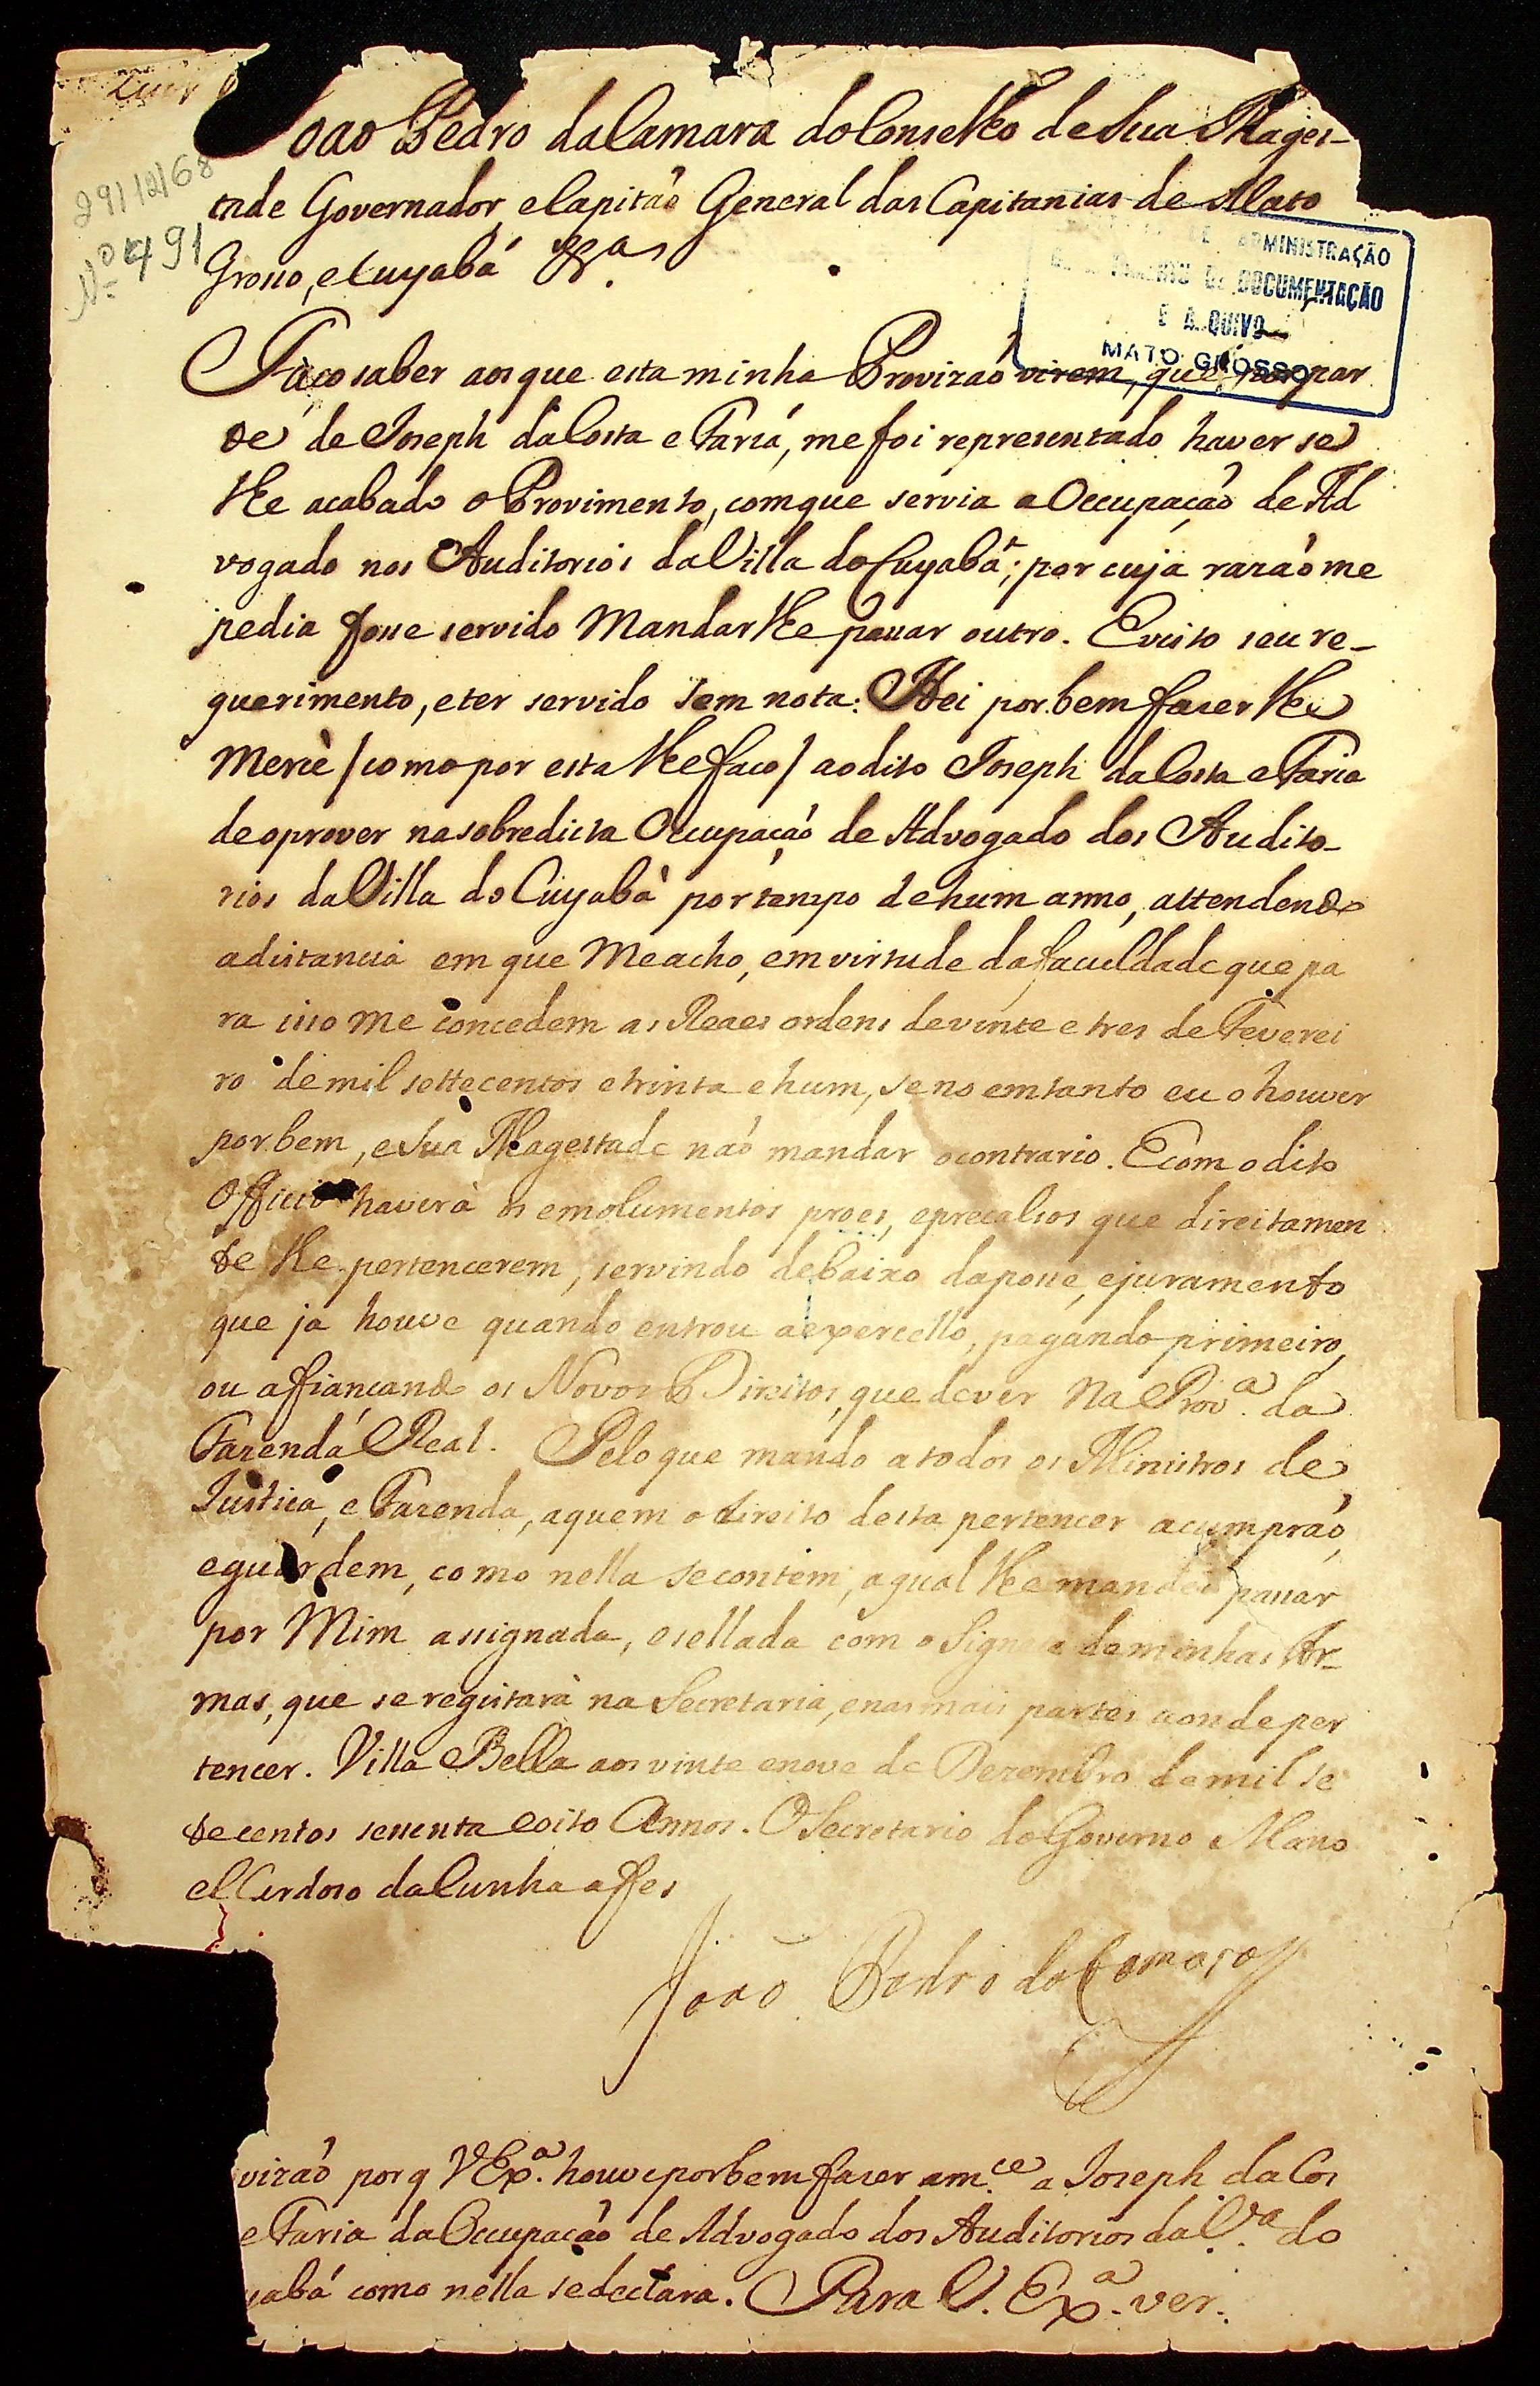 29/12/68
Nº 491
Joaõ Pedro da Camara do Conselho de Sua Mages-
tade Governador, e Capitaõ General das Capitanias de Mato
Grosso, e Cuyabá &.ª
ADMINISTRAÇÃO
DE DOCUMENTAÇÃO
E ARQUIVO
MATO GROSSO
Faço saber aos que esta minha Provizaõ virem, que por par
te de Joseph da Costa e Faria, me foi representado haver se
lhe acabado o Provimento, com que servia a Occupaçaõ de Ad
vogado nos Auditorios da Villa do Cuyabá; por cuja razaõ me
pedia fosse servido Mandar lhe passar outro. E visto seu re-
querimento, e ter servido sem nota: Hei por bem fazer lhe
Mercè /como por esta lhe faço/ ao dito Joseph da Costa e Faria
de o prover na sobredicta Occupaçaõ de Advogado dos Audito-
rios da Villa do Cuyabà por tempo de hum anno, attendendo
a distancia em que me acho, em virtude da faculdade que pa
ra isso me concedem as Reaes ordens de vinte e tres de Feverei
ro de mil settecentos e trinta e hum, se no emtanto eu o houver
por bem, e Sua Magestade naõ mandar o contrario. E com o dito
Officio haverà os emolumentos proes, e precalsos que direitamen
te lhe pertencerem, servindo debaixo da posse, e juramento
que ja houve quando entrou a exercello, pagando primeiro,
ou affiançando os Novos Direitos, que dever na Prov.ª da
Fazenda Real. Pelo que mando a todos os Ministros de
Justiça, e Fazenda, a quem o direito desta pertencer a cumpraõ,
e guardem, como nella se contem, a qual lhe mandei passar
por Mim assignada, e sellada com o Signete de minhas Ar-
mas, que se registarà na Secretaria, e nas mais partes aonde per
tencer. Villa Bella aos vinte e nove de Dezembro de mil se
tecentos sessenta e oito Annos. O Secretario do Governo Mano
el Cardoso da Cunha a fes
Joaõ Pedro da Camara
vizaõ por q V Ex.ª houve por bem fazer a m.ce a Joseph da Cos
e Faria da Occupaçaõ de Advogado dos Auditorios da V.ª do
yabá como nella se declara. Para V. Ex.ª ver.